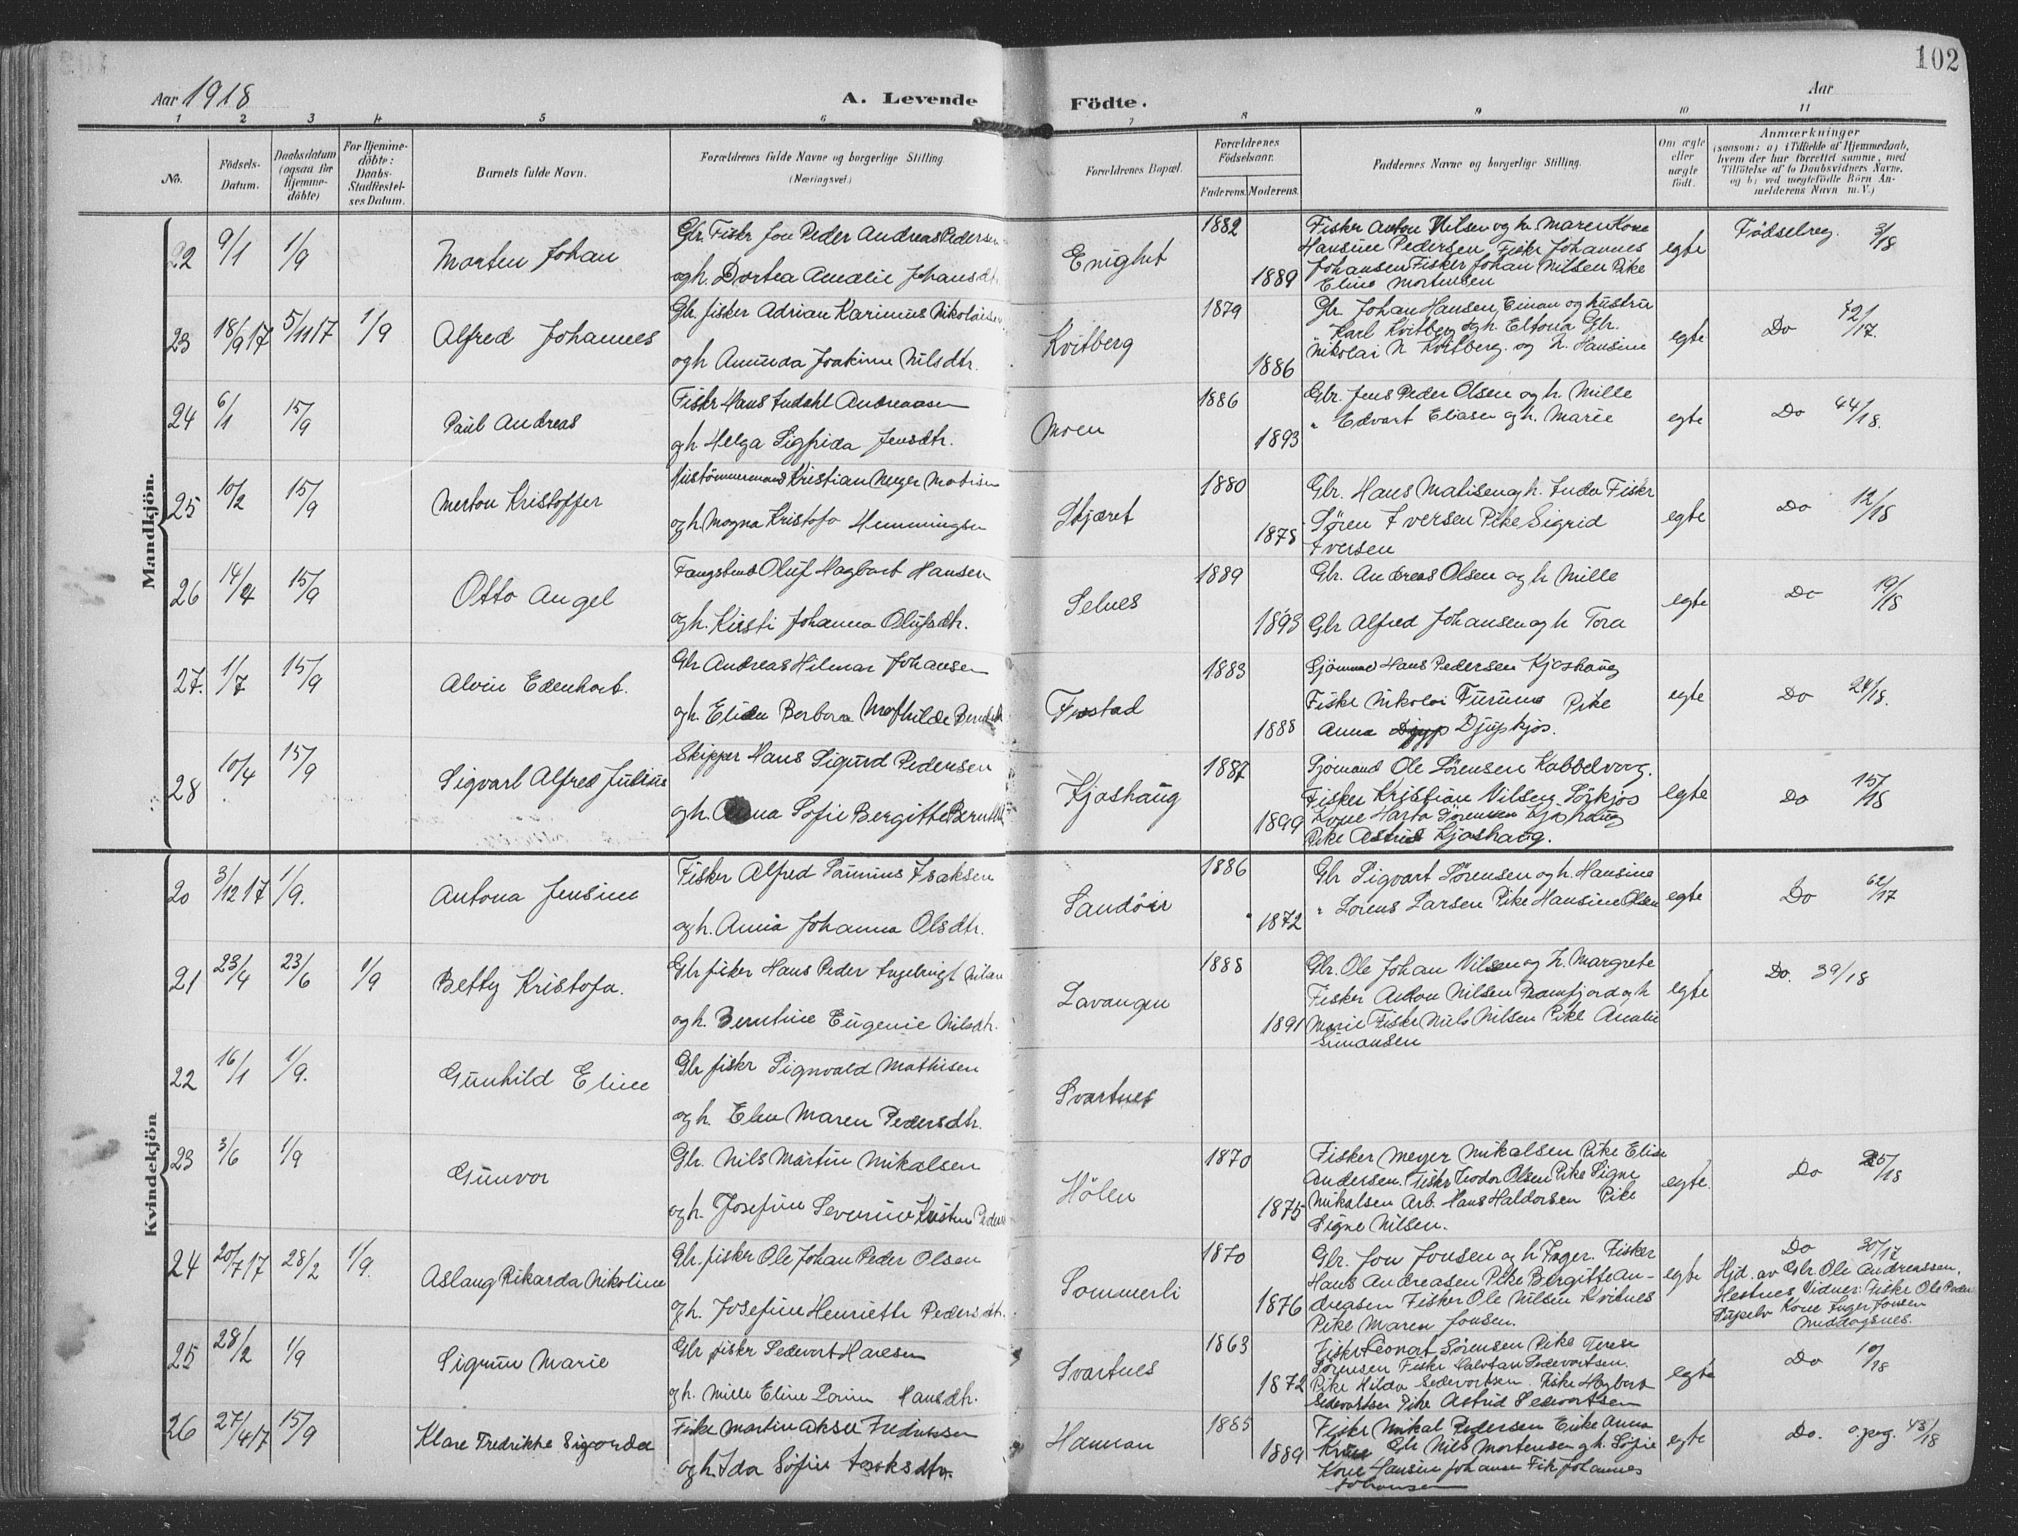 102
Aar 1918
A. Levende Födte.
Aar
1 2 3 4 5 6 7 8 9 10 11
No.
Födsels-Datum.
Daabsdatum (ogsaa for Hjemme-döbte)
For Hjemme-döbte: Daabs-Stadfæstel-ses Datum.
Barnets fulde Navn.
Forældrenes fulde Navne og borgerlige Stilling.
(Næringsvei)
Forældrenes Bopæl.
Forældrenes Födselsaar.
Faderens. Moderens.
Faddernes Navne og borgerlige Stilling.
Om ægte eller uægte födt.
Anmærkninger
(saasom: a) i Tilfælde af Hjemmedaab, hvem der har forrettet samme, med Tilföielse af to Daabsvidners Navne, og b) ved uægtefödte Börn An-melderens Navn m. V.)
Mandkjön.
22 9/1 1/9 Morten Johan
Gbr. Fisker Jon Peder Andreas Pedersen
og h. Dortea Amalie Johansdtr.
Enighet 1882 1889
Fisker Anton Nilsen og h. Maren Kone
Hansine Pedersen Fisker Johannes
Johansen Fisker Johan Nilsen Pike
Eline Mortensen
egte Fødselreg. 3/18
23 18/9 17 5/11 17 1/9 Alfred Johannes
Gbr. fisker Adrian Karinius Nikolaisen
og h Amunda Joakime Nilsdtr.
Kvitberg 1879 1886
Gbr Johan Hansen, Einan og hustru
" Karl Kvitberg og h Eltona Gbr.
Nikolai N Kvitberg og h. Hansine
egte Do 42/17.
24 6/1 15/9 Paul Andreas
Fisker Hans Indahl Andreasen
og h. Helga Sigfrida Jensdtr.
Moen 1886 1893
Gbr. Jens Peder Olsen og h. Mille
" Edvart Eliasen og h. Marie
egte Do 44/18.
25 10/2 15/9 Merton Kristoffer
Hustömmermand Kristian Meyer Madisen
og h Magna Kristofa Hemmingsen
Skjæret 1880 1878
Gbr. Hans Matisen og h. Inda Fisker
Søren Iversen Pike Sigrid
Iversen
egte Do 12/18
26 14/4 15/9 Otto Angel
Fangstmd Oluf Hagbart Hansen
og h. Kirsti Johanna Olufsdtr.
Selnes 1889 1893
Gbr. Andreas Olsen og h Mille
Gbr Alfred Johansen og h Tora
egte Do 19/18
27. 1/7 15/9 Alvin Edenhart.
Gbr Andreas Hilmar Johansen
og h. Eliden Berbora Mathilde
Fostad 1883 1888
Sjömand Hans Pedersen Kjoshaug
Fisker Nikolai Furumo Pike
Anna Djupkjos.
egte Do 24/18.
28 10/4 15/9 Sigvart Alfred Julius
Skipper Hans Sigurd Pedersen
og h. Anna Sofie Bergitte
Kjoshaug 1887 1899
Sjömand Ole Sörensen Kabbelvaag.
Fisker Kristian Nilsen Sörkjos
Kone Harta Sörensen Kjoshaug
Pike Astrid Kjoshaug.
egte Do 15/18
Kvindekjön
20 3/12 17 1/9. Antona Jensine
Fisker Alfred Paunius Isaksen
og h. Anna Johanna Olsdtr.
Sandöir 1886 1872
Gbr Sigvart Sörensen og h. Hansine
" Lorens Larsen Pike Hansine Olsen
egte Do 62/17
21 23/4 23/6 1/9 Betty Kristofa.
Gbr fisker Hans Peder Ingebrigt Nilsen
og h. Berntine Eugenie Nilsdtr.
Lavangen 1888 1891
Gbr. Ole Johan Nilsen og h. Margrete
Fisker Anton Nilsen Ramfjord og h
Marie Fisker Nils Nilsen Pike Amalie
Simonsen
egte Do. 39/18
22 16/1 1/9. Gunhild Eline
Gbr fisker Signvald Mathisen
og h. Elen Maren Pedersdtr.
Svartnes
23 3/6 1/9 Gunvor
Gbr. Nils Martin Mikalsen
og h. Josefine Severine
Hölen 1870 1875
Fisker Meyer Mikalsen Pike Elise
Andersen. Fisker Teodor Olsen Pike Signe
Mikalsen Arb. Hans Haldorsen Pike
Signe Nilsen.
egte. Do 25/18
24 20/7 17 28/2 1/9. Aslaug Rikarda Nikoline
Gbr. fisker Ole Johan Peder Olsen
og h. Josefine Henriette Pedersdtr.
Sommerli 1870 1876
Gbr. Jon Jonsen og h Inger. Fisker
Hans Andreasen Pike Bergitte An-
dreasen Fisker Ole Nilsen Kvitnes
Pike Maren Jonsen.
egte Do 30/17
Hjd. av Gbr Ole Andreassen,
Hestnes Vidner: Fisker Ole Peder
Kone Inger Jonsen
Middagsnes.
25 28/2 1/9 Sigrun Marie
Gbr fisker Sedevart Hansen
og h. Mille Eline Hansdtr.
Svartnes 1863 1872
Fisker Leonart Sörensen Pike Terese
Sörensen Fisker Halvtan Sedevartsen.
Pike Hilda Sedevartsen. Fisker Hagbart
Sedevartsen Pike Astrid Sedevartsen
egte Do 10/18
26 27/4 17 15/9 Klare Fredrikke Sigvarda
Fisker Martin Aksel Fredriksen
og h Ida Sofie Isaksdtr.
Hamnan 1885 1889
Fisker Mikal Pedersen Enke Anna
Gbr Nils Mortensen og h. Sofie
Kone Hansine Johansen Fisk Johannes
Johansen
egte Do. o.pag. 43/18